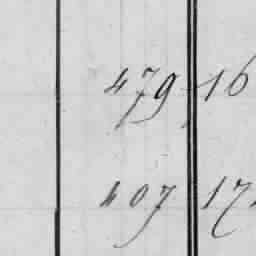 479 16
407 17